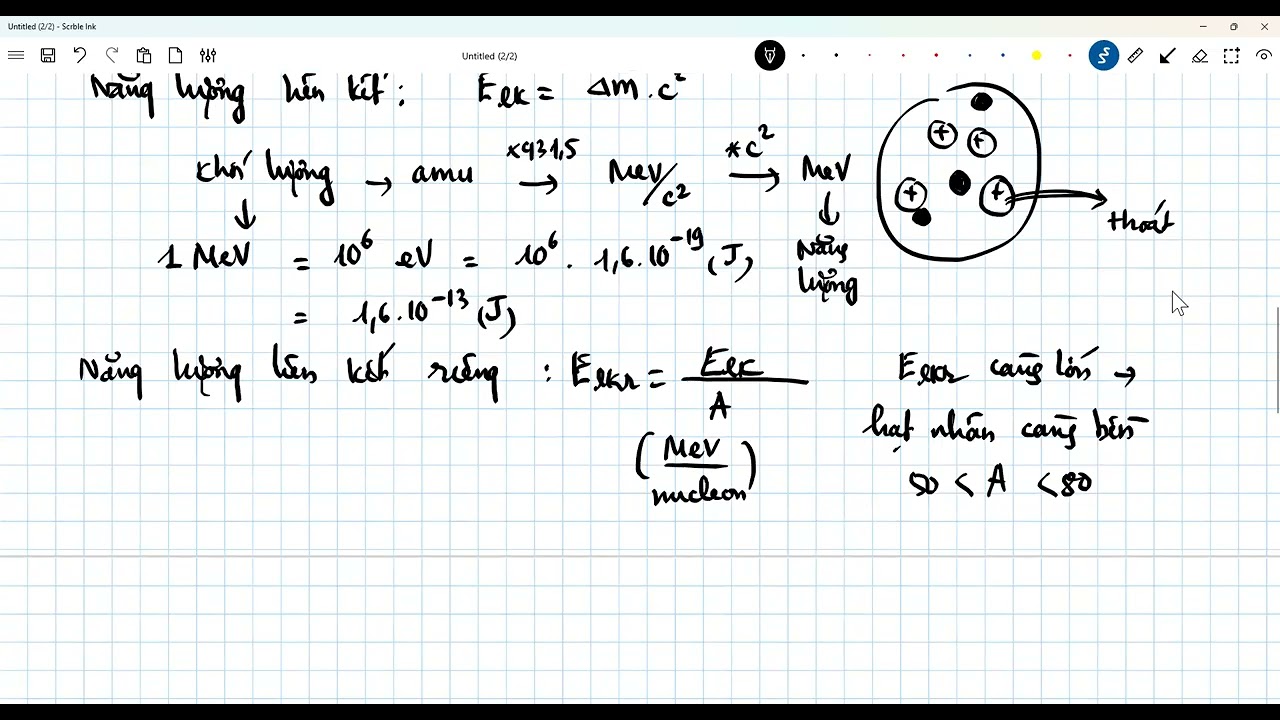 Untitled (2/2) - Scrble Ink
Untitled (2/2)
Năng lượng liên kết : Elk = Δm . c²
khối lượng → amu ×931,5 → MeV/c² *c² → MeV
↓ ↓
năng lượng
1 MeV = 10⁶ eV = 10⁶ . 1,6.10⁻¹⁹ (J)
= 1,6.10⁻¹³ (J)
+ + + +
thoát
Năng lượng liên kết riêng : Elkr = Elk / A
(MeV / nucleon)
Elkr càng lớn →
hạt nhân càng bền
50 < A < 80